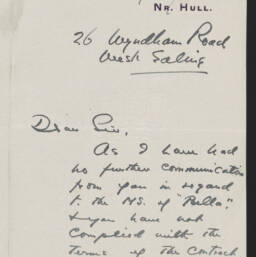 Nr. Hull.
26 Wyndham Road
West Ealing
Dear Sir,
As I have had
no further communication
from you in regard
to the MS. of "Bella"
& you have not
complied with the
terms of the contract